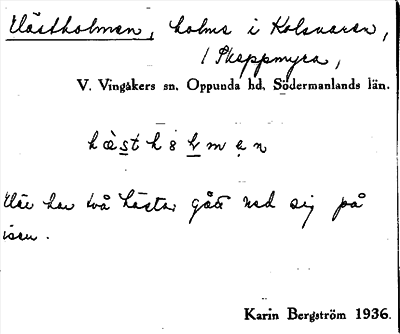 Hästholmen, holme i Kolsnaren,
/ Skeppmyra,
V. Vingåkers sn. Oppunda hd. Södermanlands län.
hàst hȯlmạn
Här har två hästar gått ned sig på
isen.
Karin Bergström 1936.